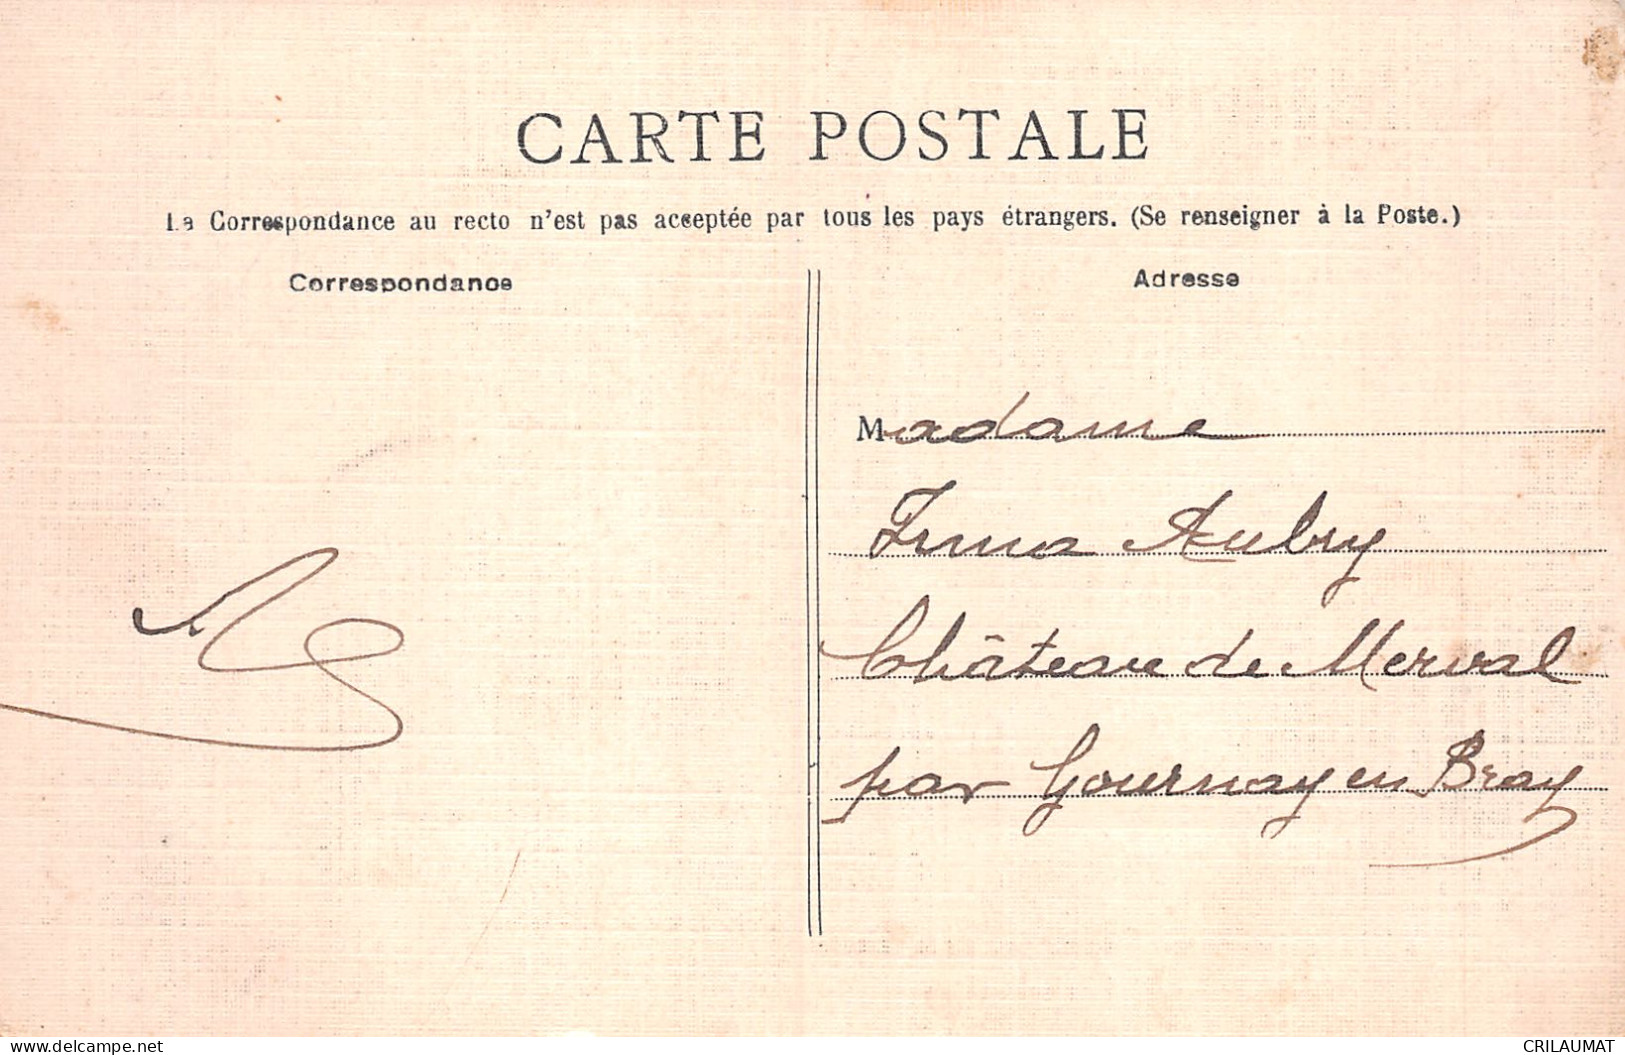 CARTE POSTALE
La Correspondance au recto n'est pas acceptée par tous les pays étrangers. (Se renseigner à la Poste.)
Correspondance
Adresse
Madame
Irma Aubry
Château de Merval
par Gournay en Bray
www.delcampe.net
CRILAUMAT